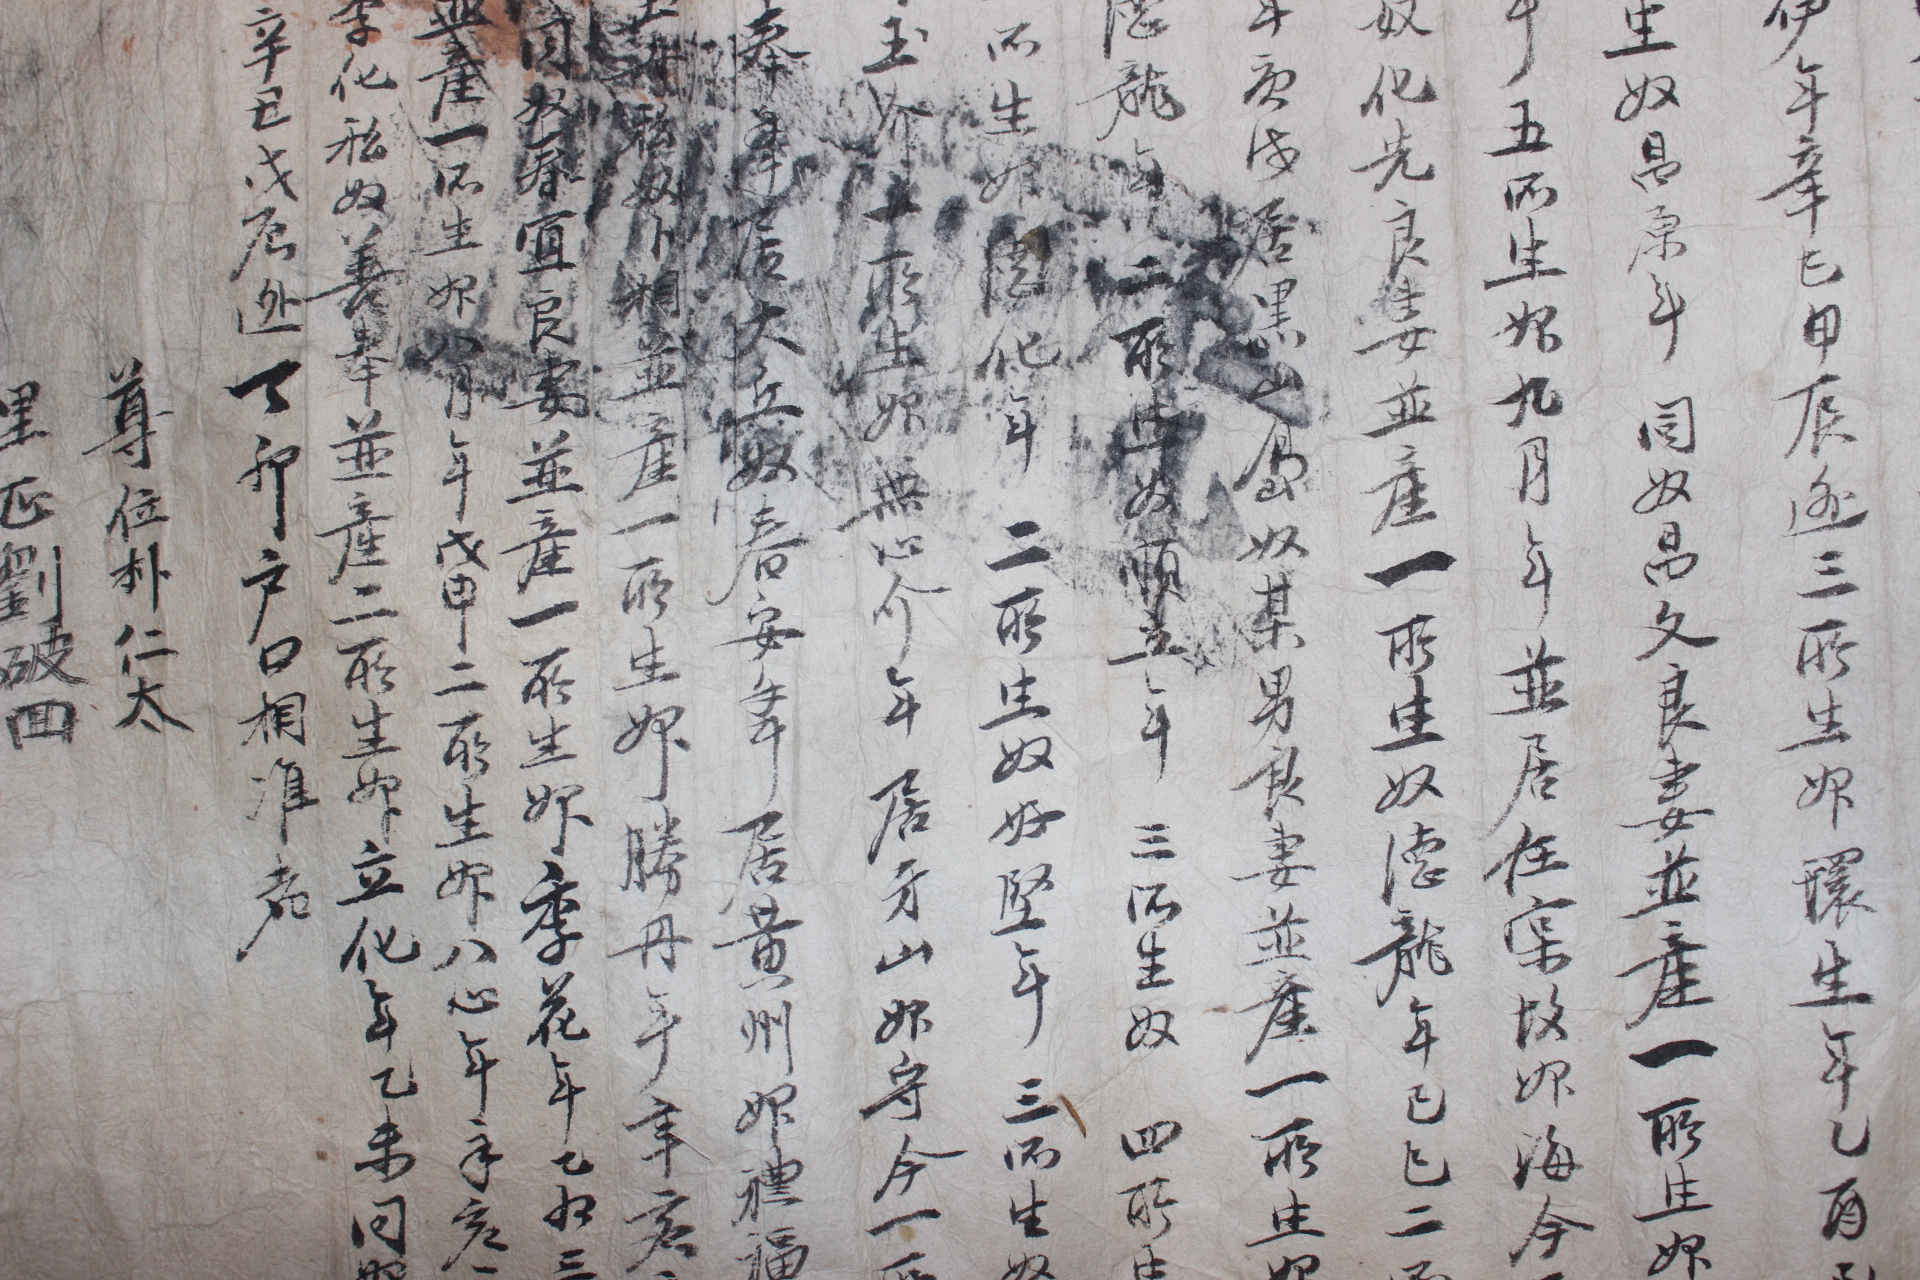 伊年辛巳甲辰逃三所生婢環生年乙酉
生奴昌原年 同奴昌文良妻並産一所生婢
年五所生婢九月年並居任実故婢海今
奴化先良妻並産一所生奴德龍年己巳二所
年庚戌居黑山島奴某男良妻並産一所生婢
德龍年 二所生奴順立年 三所生奴 四所生
所生婢 化年 二所生奴好堅年 三所生奴
玉介 所生婢無心介年 居牙山婢守今一所
奉年 居大丘奴春安年 居黄州婢禮福
私奴 並産一所生婢勝丹年辛亥
同奴春 良妻並産一所生婢季花年乙 三
並産一所生婢八月年戊申二所生婢八心年辛亥
李化私奴善奉並産二所生婢立化年乙未同婢
辛丑戊辰逃丁卯户口相准者
尊位朴仁太
里正劉破回